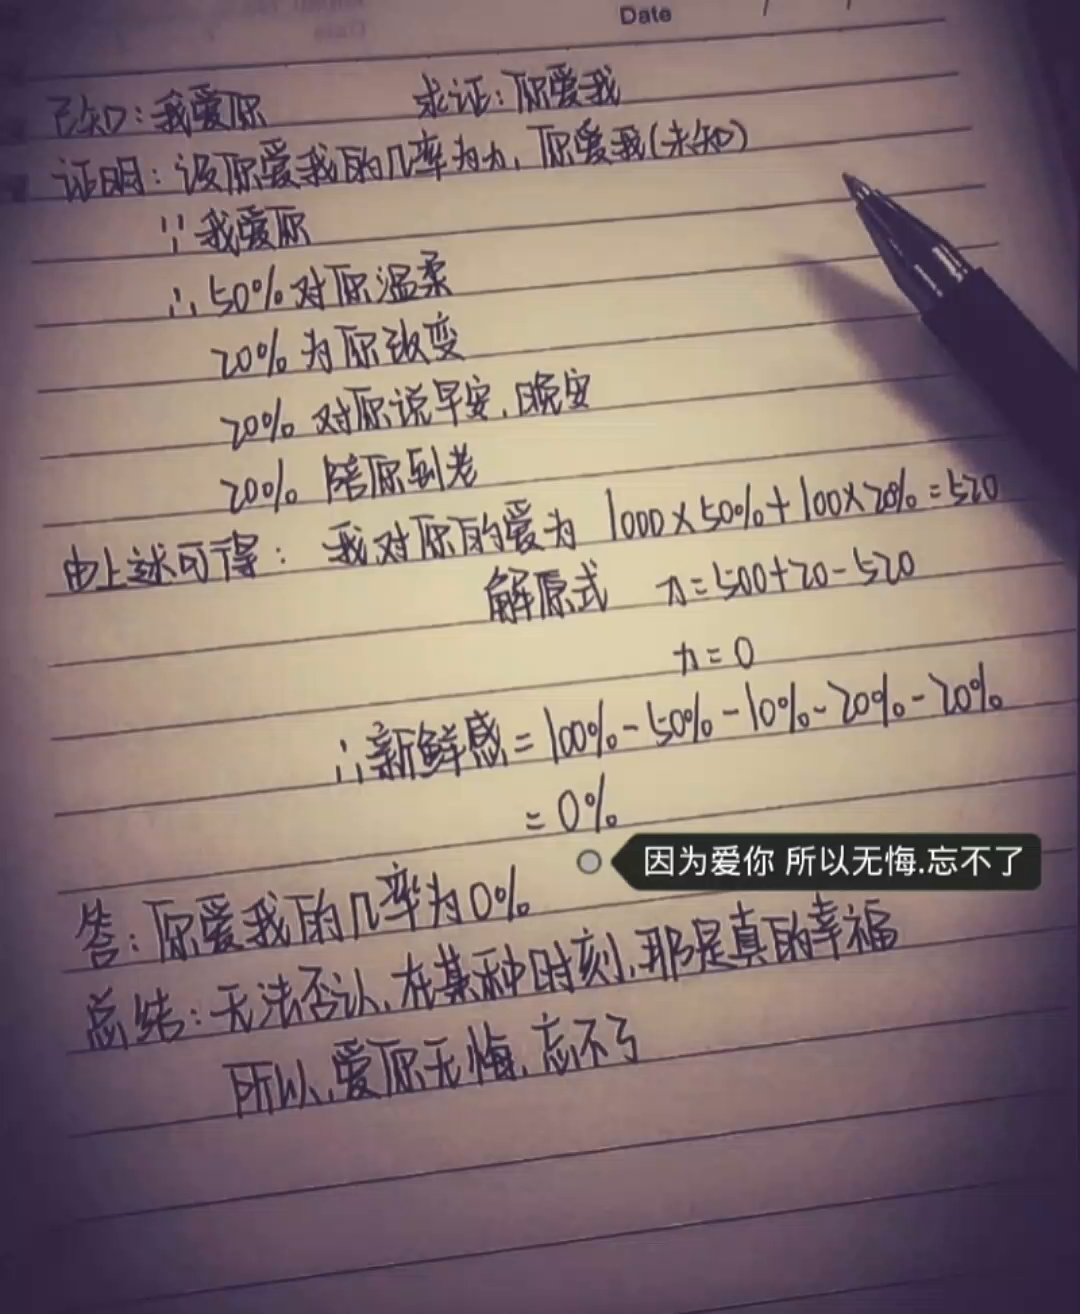 Date / /
已知：我爱你 求证：你爱我
证明：设你爱我的几率为n，你爱我(未知)
∵我爱你
∴50%对你温柔
20%为你改变
20%对你说早安，晚安
20%陪你到老
由上述可得：我对你的爱为1000×50%+100×20%=520
解原式 n=500+20-520
n=0
∴新鲜感=100%-50%-10%-20%-20%
=0%
因为爱你 所以无悔.忘不了
答：你爱我的几率为0%
总结：无法否认，在某种时刻，那是真的幸福
所以，爱你无悔，忘不了